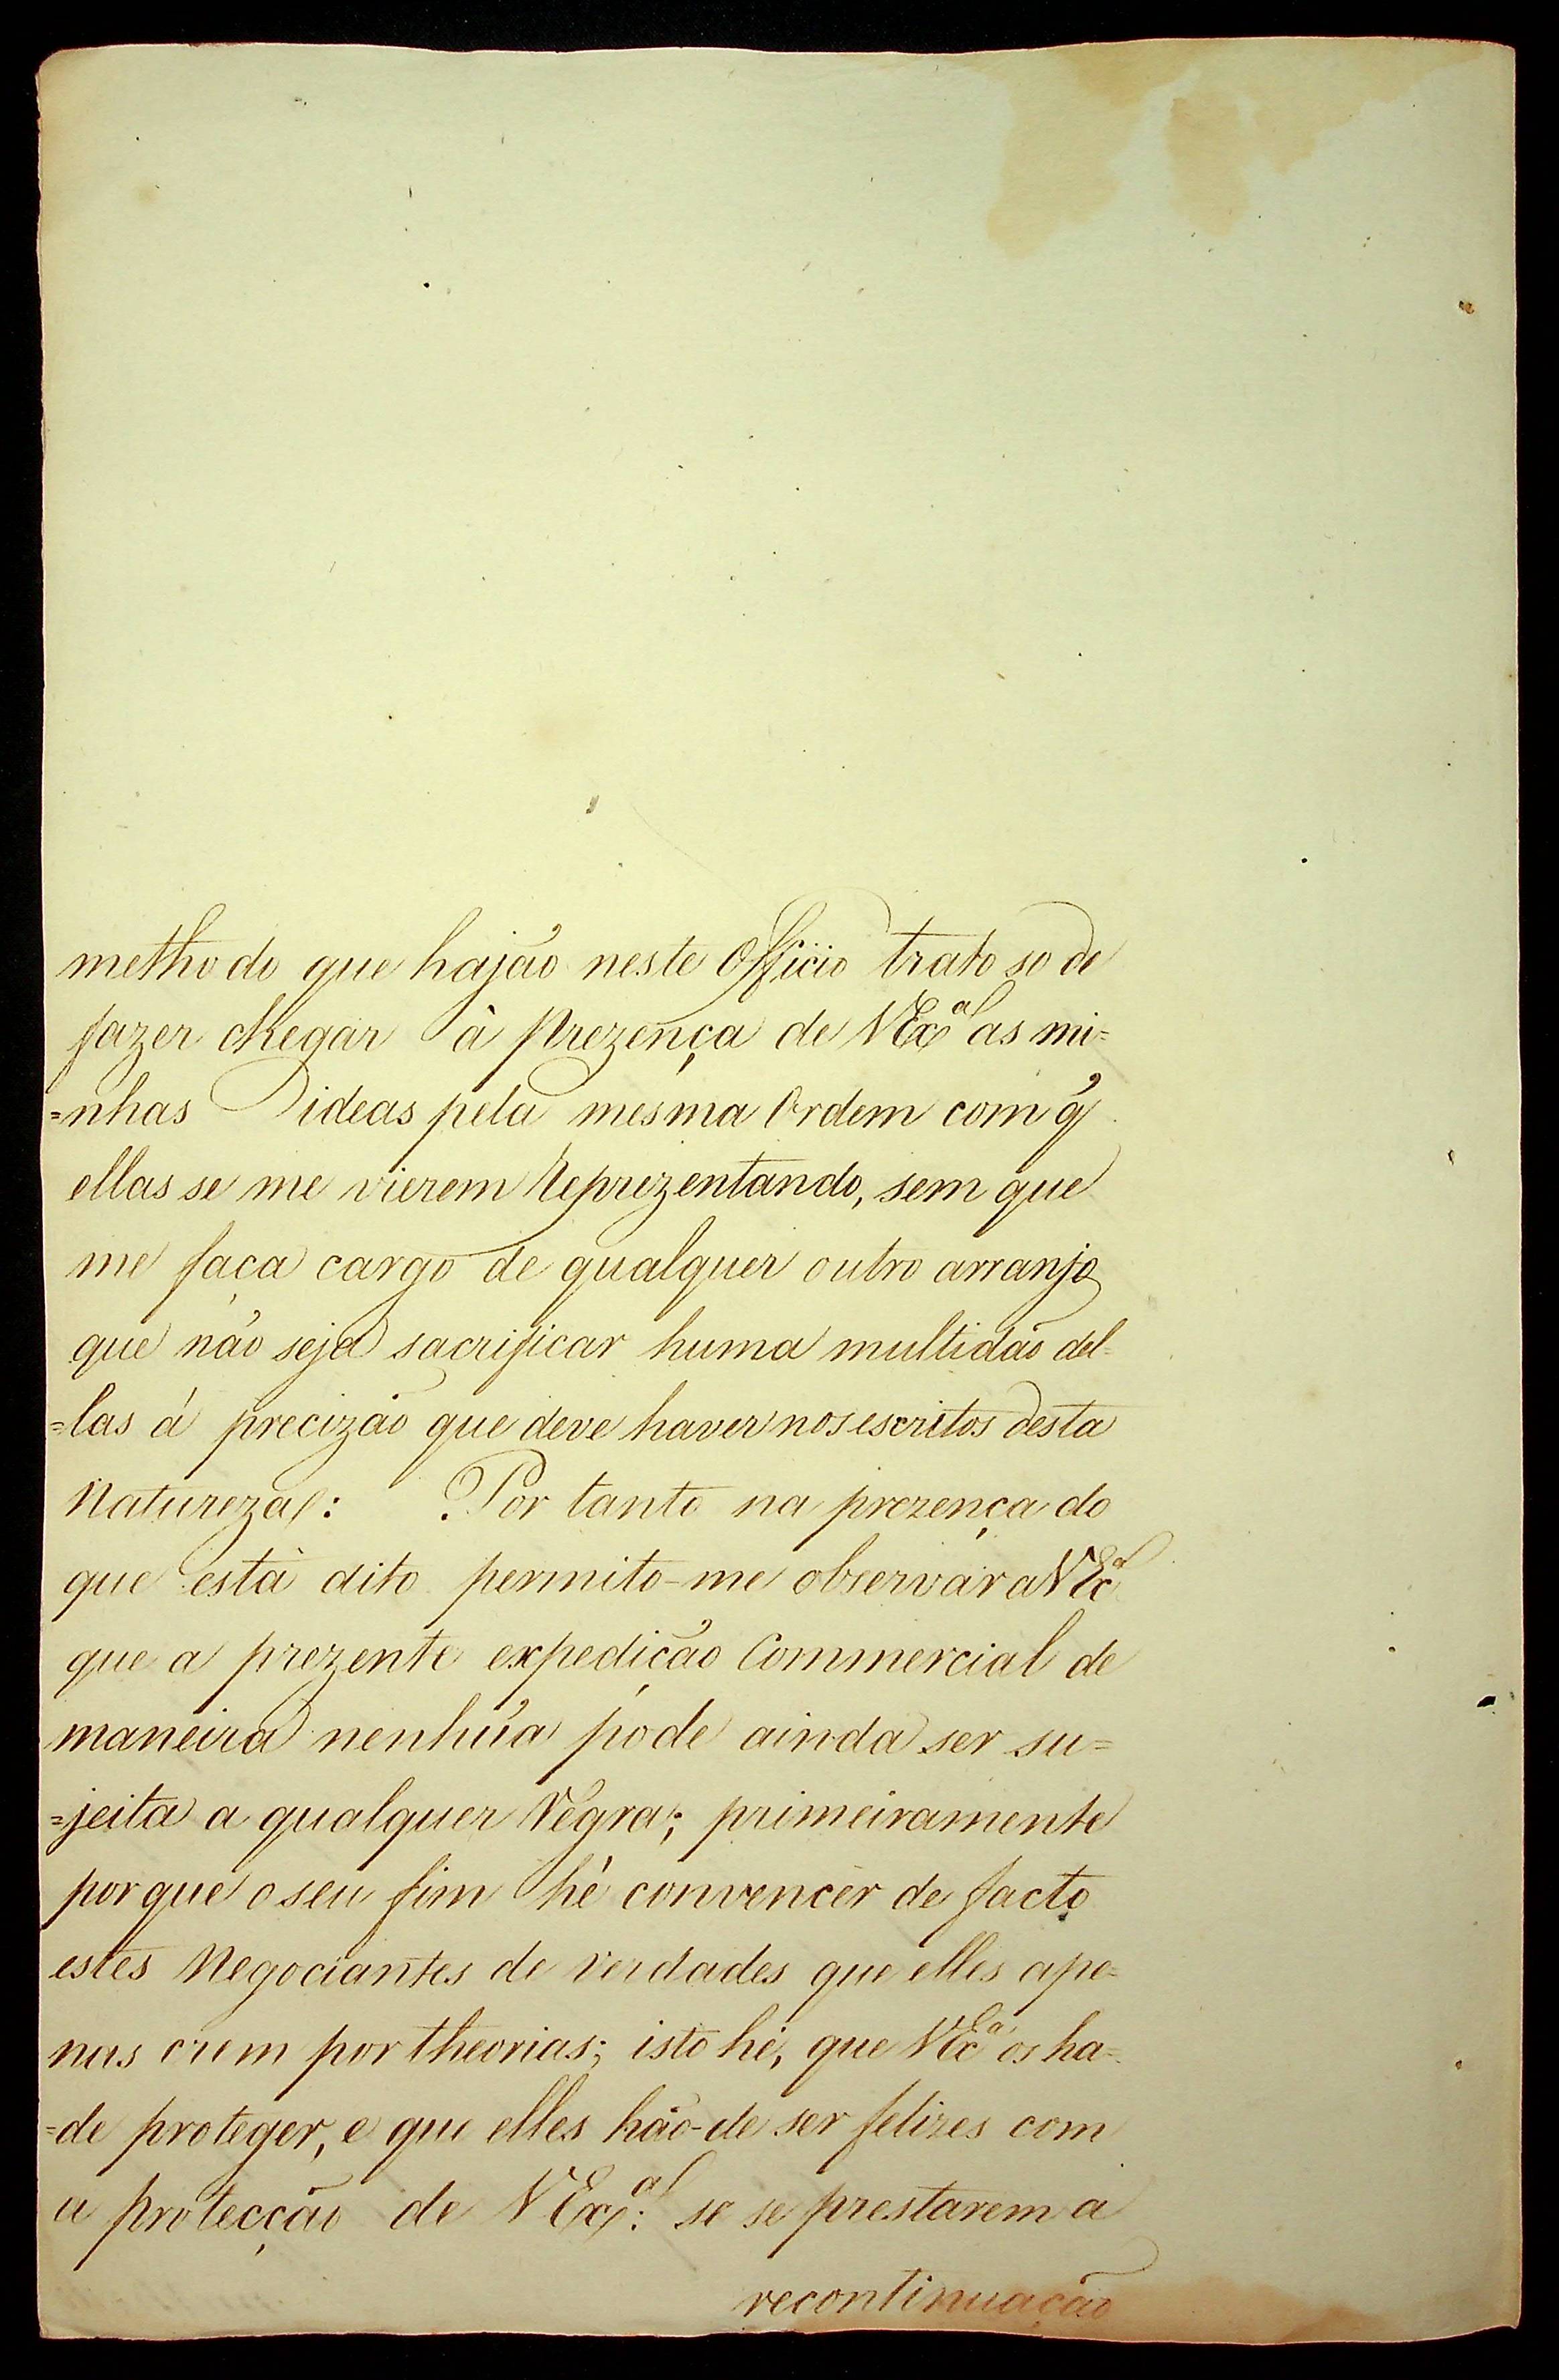 methodo que hajão neste Officio trato so de
fazer chegar à Prezença de VExª as mi=
=nhas ideas pela mesma Ordem com q̃
ellas se me vierem Reprezentando, sem que
me faça cargo de qualquer outro arranjo
que não seja sacrificar huma multidão del=
=las á precizão que deve haver nos escritos desta
Natureza: Por tanto na prezença do
que està dito permito-me observár a VExª
que a prezente expedição Commercial de
maneira nenhũa póde ainda ser su=
=jeita a qualquer Régra; primeiramente
porque o seu fim hé convencer de facto
estes Negociantes de verdades que elles ape=
nas crem por theorias; isto hé, que VExª os ha=
=de proteger, e que elles hão-de ser felizes com
a protecção de VExª: se se prestarem a
recontinuação